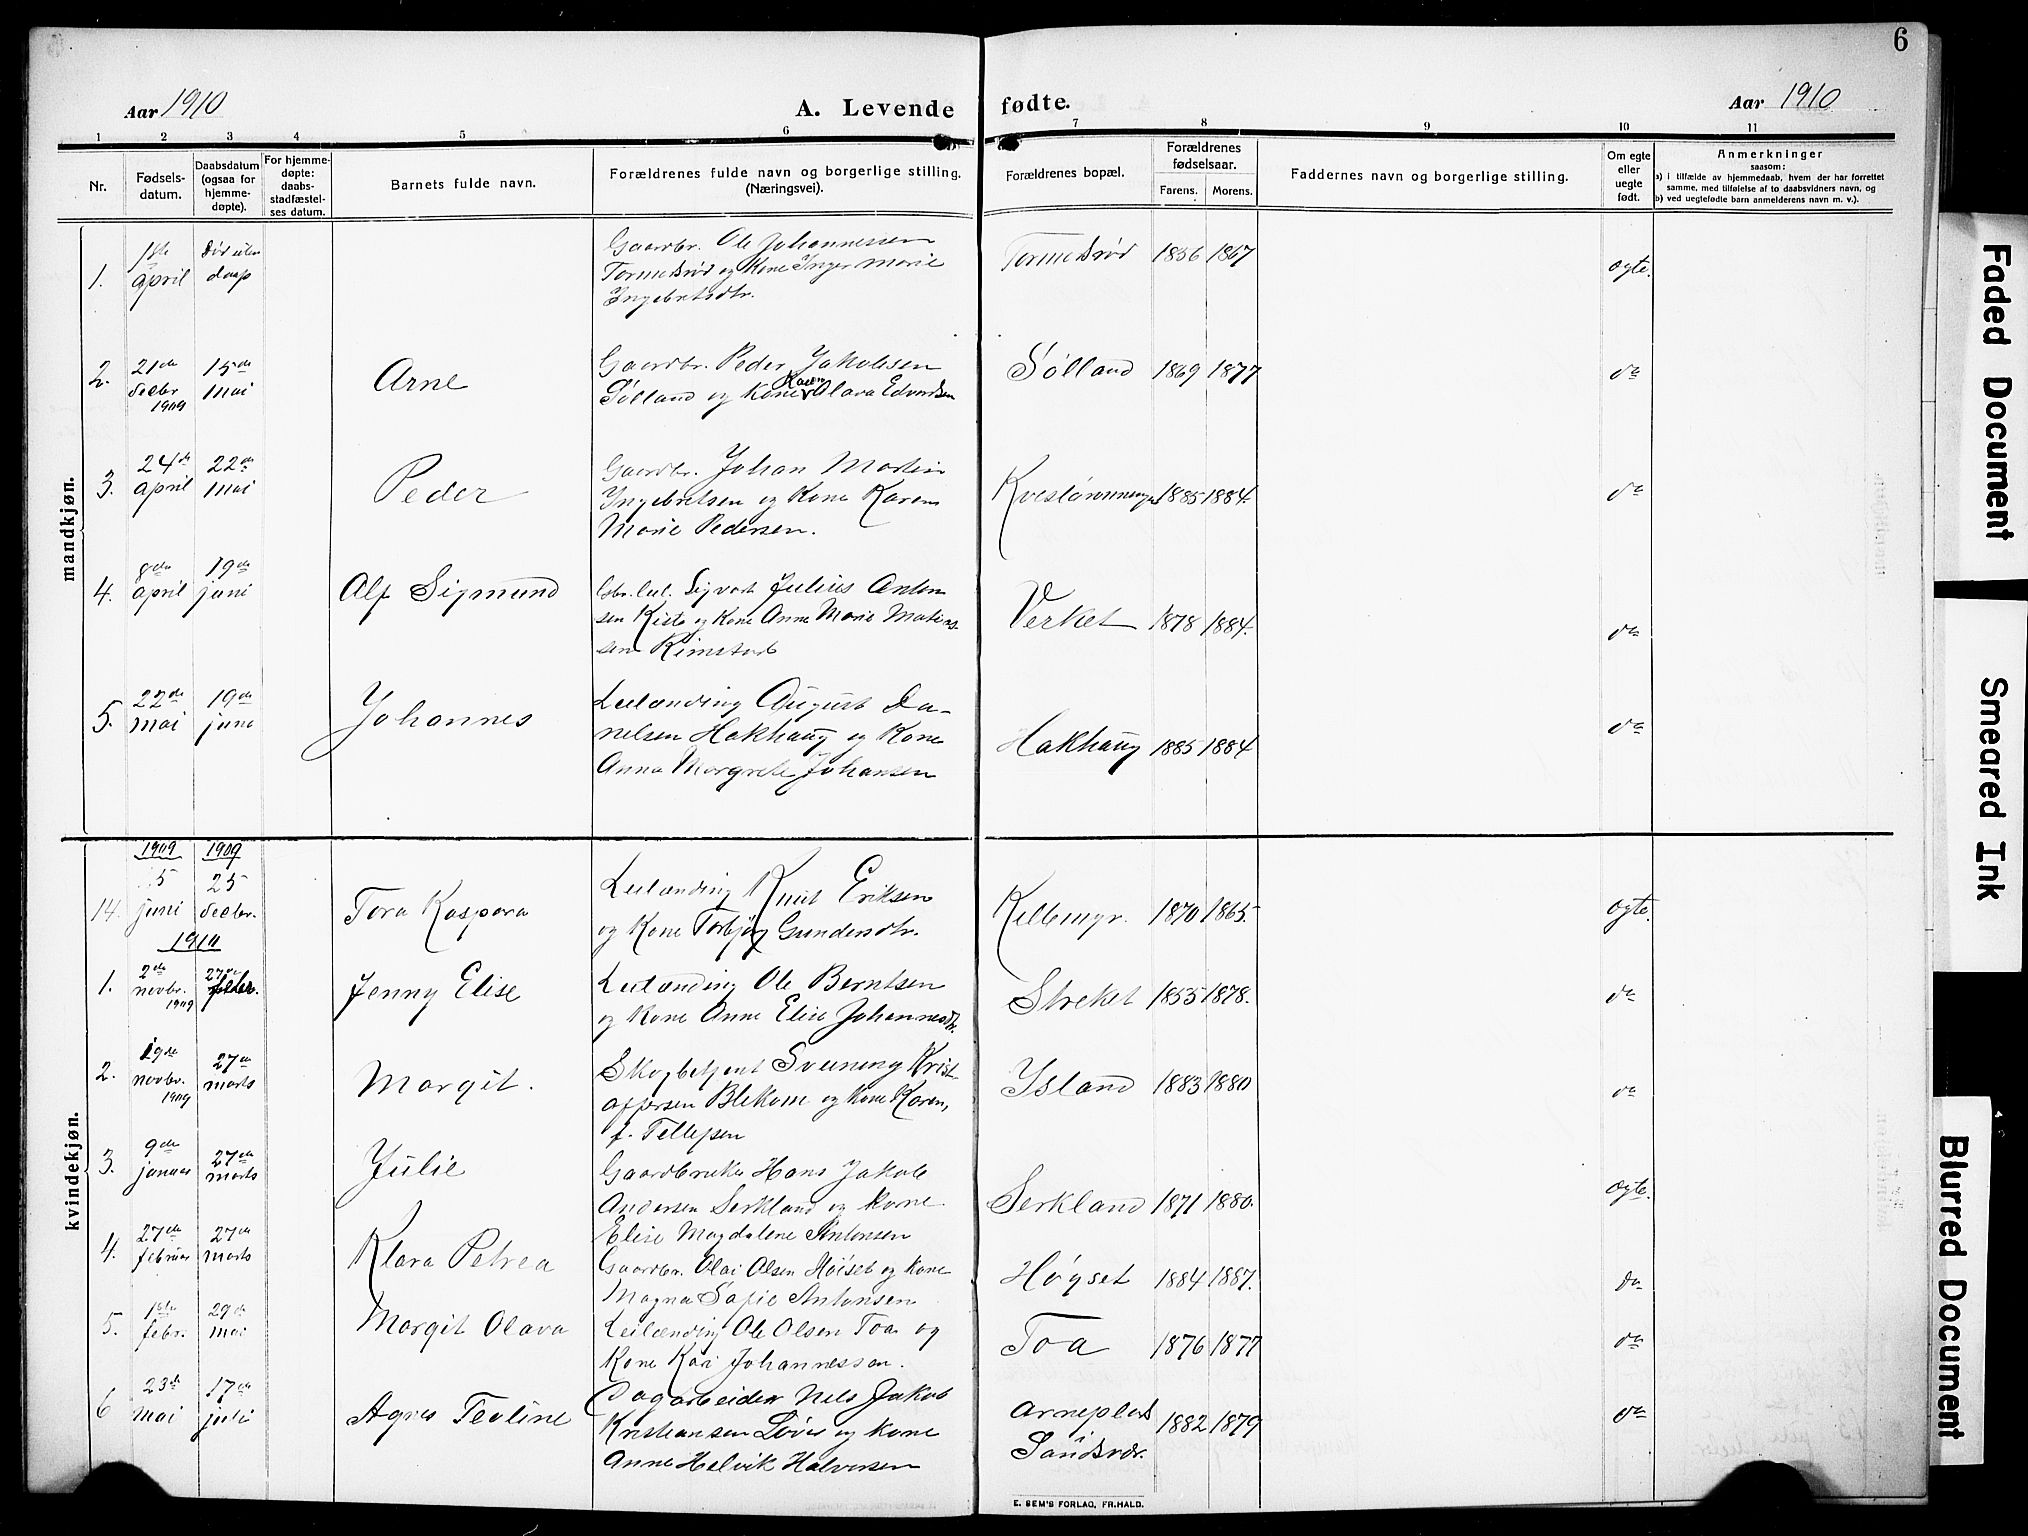 6
Aar 1910
A. Levende fødte.
Aar 1910
1 2 3 4 5 6 7 8 9 10 11
Nr.
Fødsels-
datum.
Daabsdatum
(ogsaa for
hjemme-
døpte).
For hjemme-
døpte:
daabs-
stadfæstel-
ses datum.
Barnets fulde navn.
Forældrenes fulde navn og borgerlige stilling.
(Næringsvei).
Forældrenes bopæl.
Forældrenes
fødselsaar.
Farens. Morens.
Faddernes navn og borgerlige stilling.
Om egte
eller
uegte
født.
Anmerkninger
saasom:
a) i tilfælde av hjemmedaab, hvem der har forrettet
samme, med tilføielse af to daabsvidners navn, og
b) ved uegtefødte barn anmelderens navn m. v.).
mandkjøn.
1. 1ste april
Død uten daap
Gaardbr. Ole Johannessen
Tormodsrød og Kone Inger Marie
Ingebretsdtr.
Tormodsrød 1856 1867 egte.
2. 21de decbr 1909
15de mai
Arne
Gaardbr. Peder Jakobsen
Sølland og Kone Karen Olava Edvardsen
Sølland 1869 1877 do
3. 24de april
22de mai
Peder
Gaardbr. Johan Martin
Ingebretsen og Kone Karen
Marie Pedersen.
1885 1884. do
4. 8de april
19de juni
Alf Sigmund
Sigvart Julius Anton
sen og Kone Anne Marie
sen Rimstad
Verket 1878 1884. do
5. 22de mai
19de juni
Johannes
Leilænding August Da-
nelsen Hakhaug og Kone
Anna Margrete Johansen
Hakhaug 1885 1884 do
kvindekjøn.
1909 1909
14. juni
25 decbr.
Tora Kaspara
Leilænding Knut Eriksen
og Kone Torbjør Gundersdtr.
Kellemyr. 1870 1865. egte.
1910
1. 2de novbr. 1909
27de febr.
Jenny Elise
Leilænding Ole Berntsen
og Kone Anne Elise Johannesdtr.
Streket 1855 1878. do
2. 19de novbr. 1909
27de marts
Margit.
Skogbetjent Sveinung Krist-
offersen Blekom og Kone Karen,
f. Tellefsen
Island 1883 1880 do
3. 9de januar
27de marts
Julie
Gaardbruker Hans Jakob
Andersen Serkland og Kone
Elise Magdalene Antonsen
Serkland 1871 1880. egte.
4. 27de februar
27de marts
Klara Petrea
Gaardbr. Olai Olsen Høiset og Kone
Magna Sofie Antonsen
Høgset 1884 1887. do
5. 1ste febr.
29de mai
Margit Olava
Leilænding Ole Olsen Toa og
Kone Kari Johannessen.
Toa 1876 1877 do
6 23de mai
17de juli
Agnes Teoline
Dagarbeider Nils Jakob
Kristiansen Løver og Kone
Anne Helvik Halvorsen
Arneplads
i
Sandsvær. 1882 1879 do
E. SEM'S FORLAG, FR.HALD.
Faded Document
Smeared Ink
Blurred Document